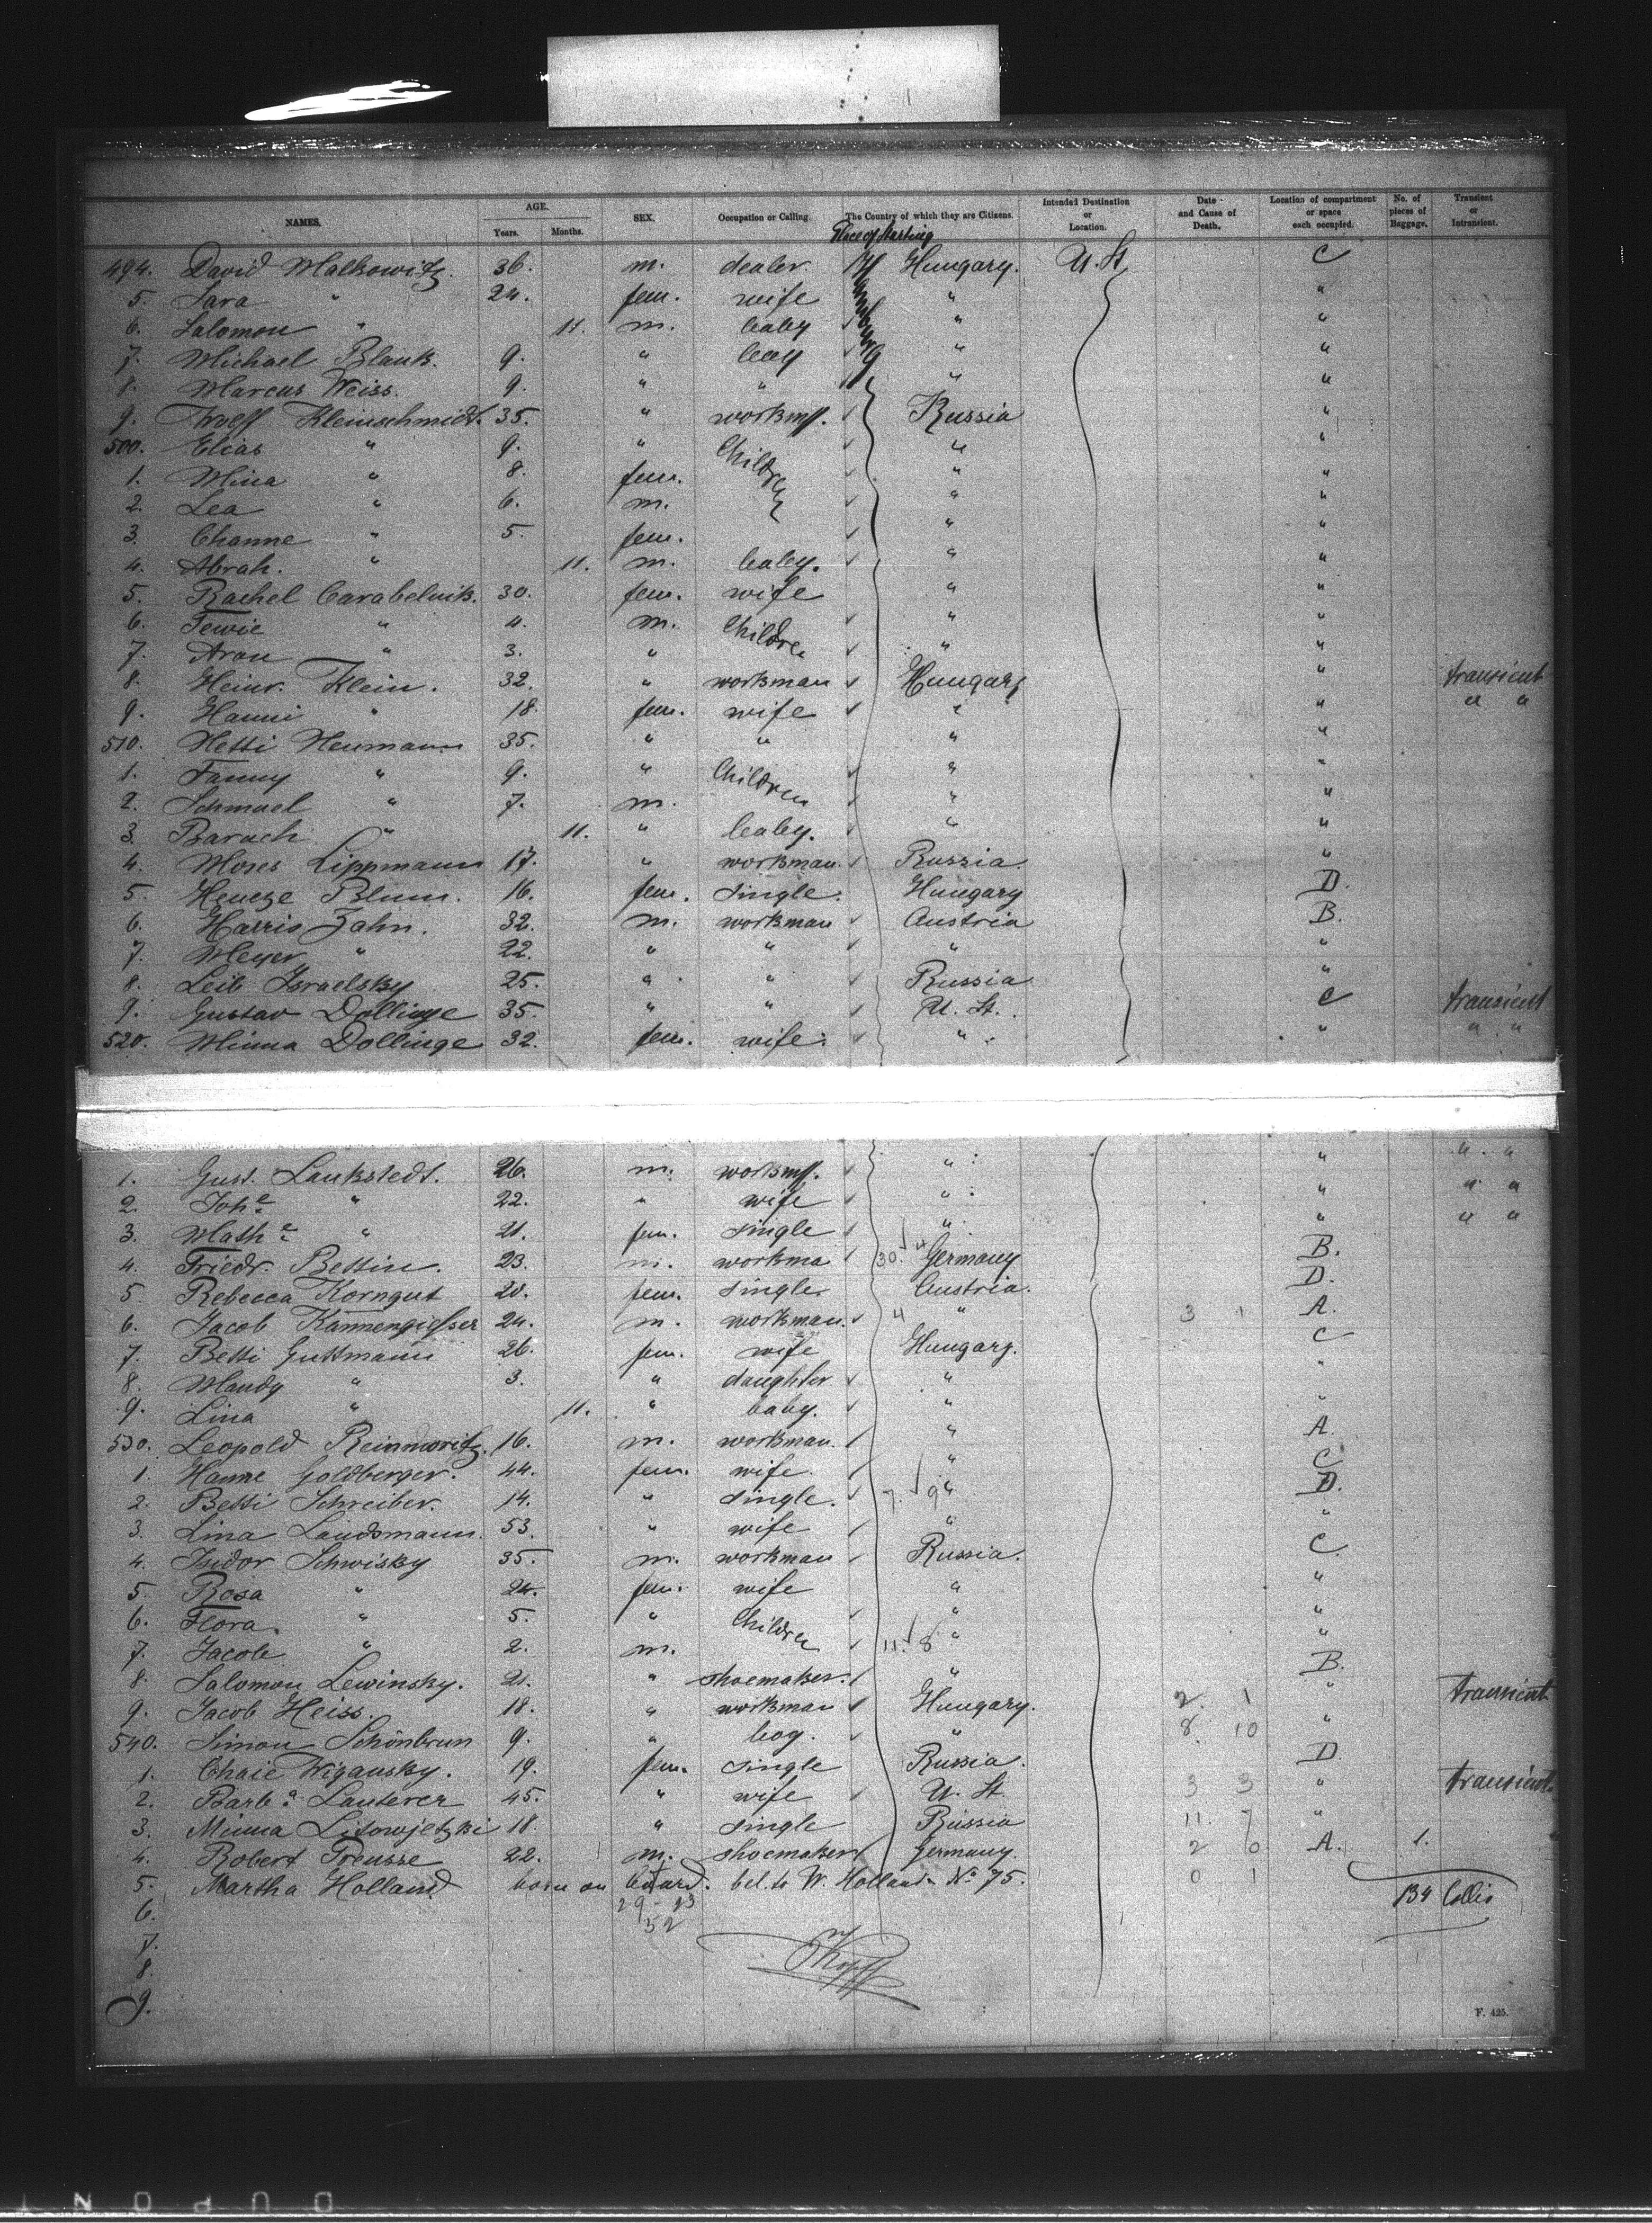 NAMES. AGE. SEX. Occupation or Calling. The Country of which they are Citizens. Intended Destination or Location. Date and Cause of Death. Location of compartment or space each occupied. No. of pieces of Baggage. Transient or Intransient.
Years. Months. Place of Starting
494. David Malkowitz. 36. m. dealer Hungary. U. St. C
5. Sara " 24. fem. wife " "
6. Salomon " 11. m. baby " "
7. Michael Blank. 9. " boy " "
8. Marcus Weiss. 9. " " " "
9. Wolff Kleinschmidt. 35. " workm. Russia "
500. Elias " 9. " Children " "
1. Mina " 8. fem. " "
2. Lea " 6. m. " "
3. Channe " 5. fem. " "
4. Abrah. " 11. m. baby. " "
5. Rachel Carabelnik. 30. fem. wife " "
6. Tewie " 4. m. Children " "
7. Aron " 3. " " "
8. Heinr. Klein. 32. " workman Hungary " transient
9. Hanni " 18. fem. wife " " " "
510. Hetti Neumann 35. " " " "
1. Fanny " 9. " Children " "
2. Schmuel " 7. m. " "
3. Baruch " 11. " baby. " "
4. Moses Lippmann 17. " workman. Russia "
5. Hencze Blum. 16. fem. single. Hungary D.
6. Harris Zahn. 32. m. workman Austria B.
7. Meyer " 22. " " " "
8. Leib Israelsky 25. " " Russia "
9. Gustav Dollinge 35. " " U. St. C transient
520. Minna Dollinge 32. fem. wife. " " " "
1. Gust. Laukstedt. 26. m. workm. " " " "
2. Joh.e " 22. " wife " " " "
3. Math.e " 21. fem. single " " " "
4. Friedr. Bettin. 23. m. workma 30. 4 Germany B.
5. Rebecca Korngut 20. fem. single Austria. D.
6. Jacob Kannengiesser 24. m. workman. 4 " 3 1 A.
7. Betti Guttmann 26. fem. wife Hungary. C
8. Mandy " 3. " daughter " "
9. Lina " 11. " baby. " "
530. Leopold Reinmoritz. 16. m. workman. " A.
1. Hanne Goldberger. 44. fem. wife. " C
2. Betti Schreiber. 14. " single. 7 9 " D.
3. Lina Landsmann. 53. " wife " "
4. Isidor Schwisky 35. m. workman Russia. C.
5. Rosa " 24. fem. wife " "
6. Flora. " 5. " Children " "
7. Jacob " 2. m. 11. 8 " "
8. Salomon Lewinsky. 21. " shoemaker. " B.
9. Jacob Heiss. 18. " workman Hungary. 2. 1 " transient
540. Simon Schönbrun 9. " boy. " 8 10 "
1. Chaie Wigansky. 19. fem. single Russia. D
2. Barb.a Lauterer 45. " wife U. St. 3 3 " transient
3. Minna Litowjetzki 18. " single Russia 11. 7 "
4. Robert Preusse 22. m. shoemaker Germany. 2 0 A. 1.
5. Martha Holland born on board. bel. to W. Holland No. 75. 0 1 134 Collis
6. 29 - 23
52
7.
8.
9.
F. 425.